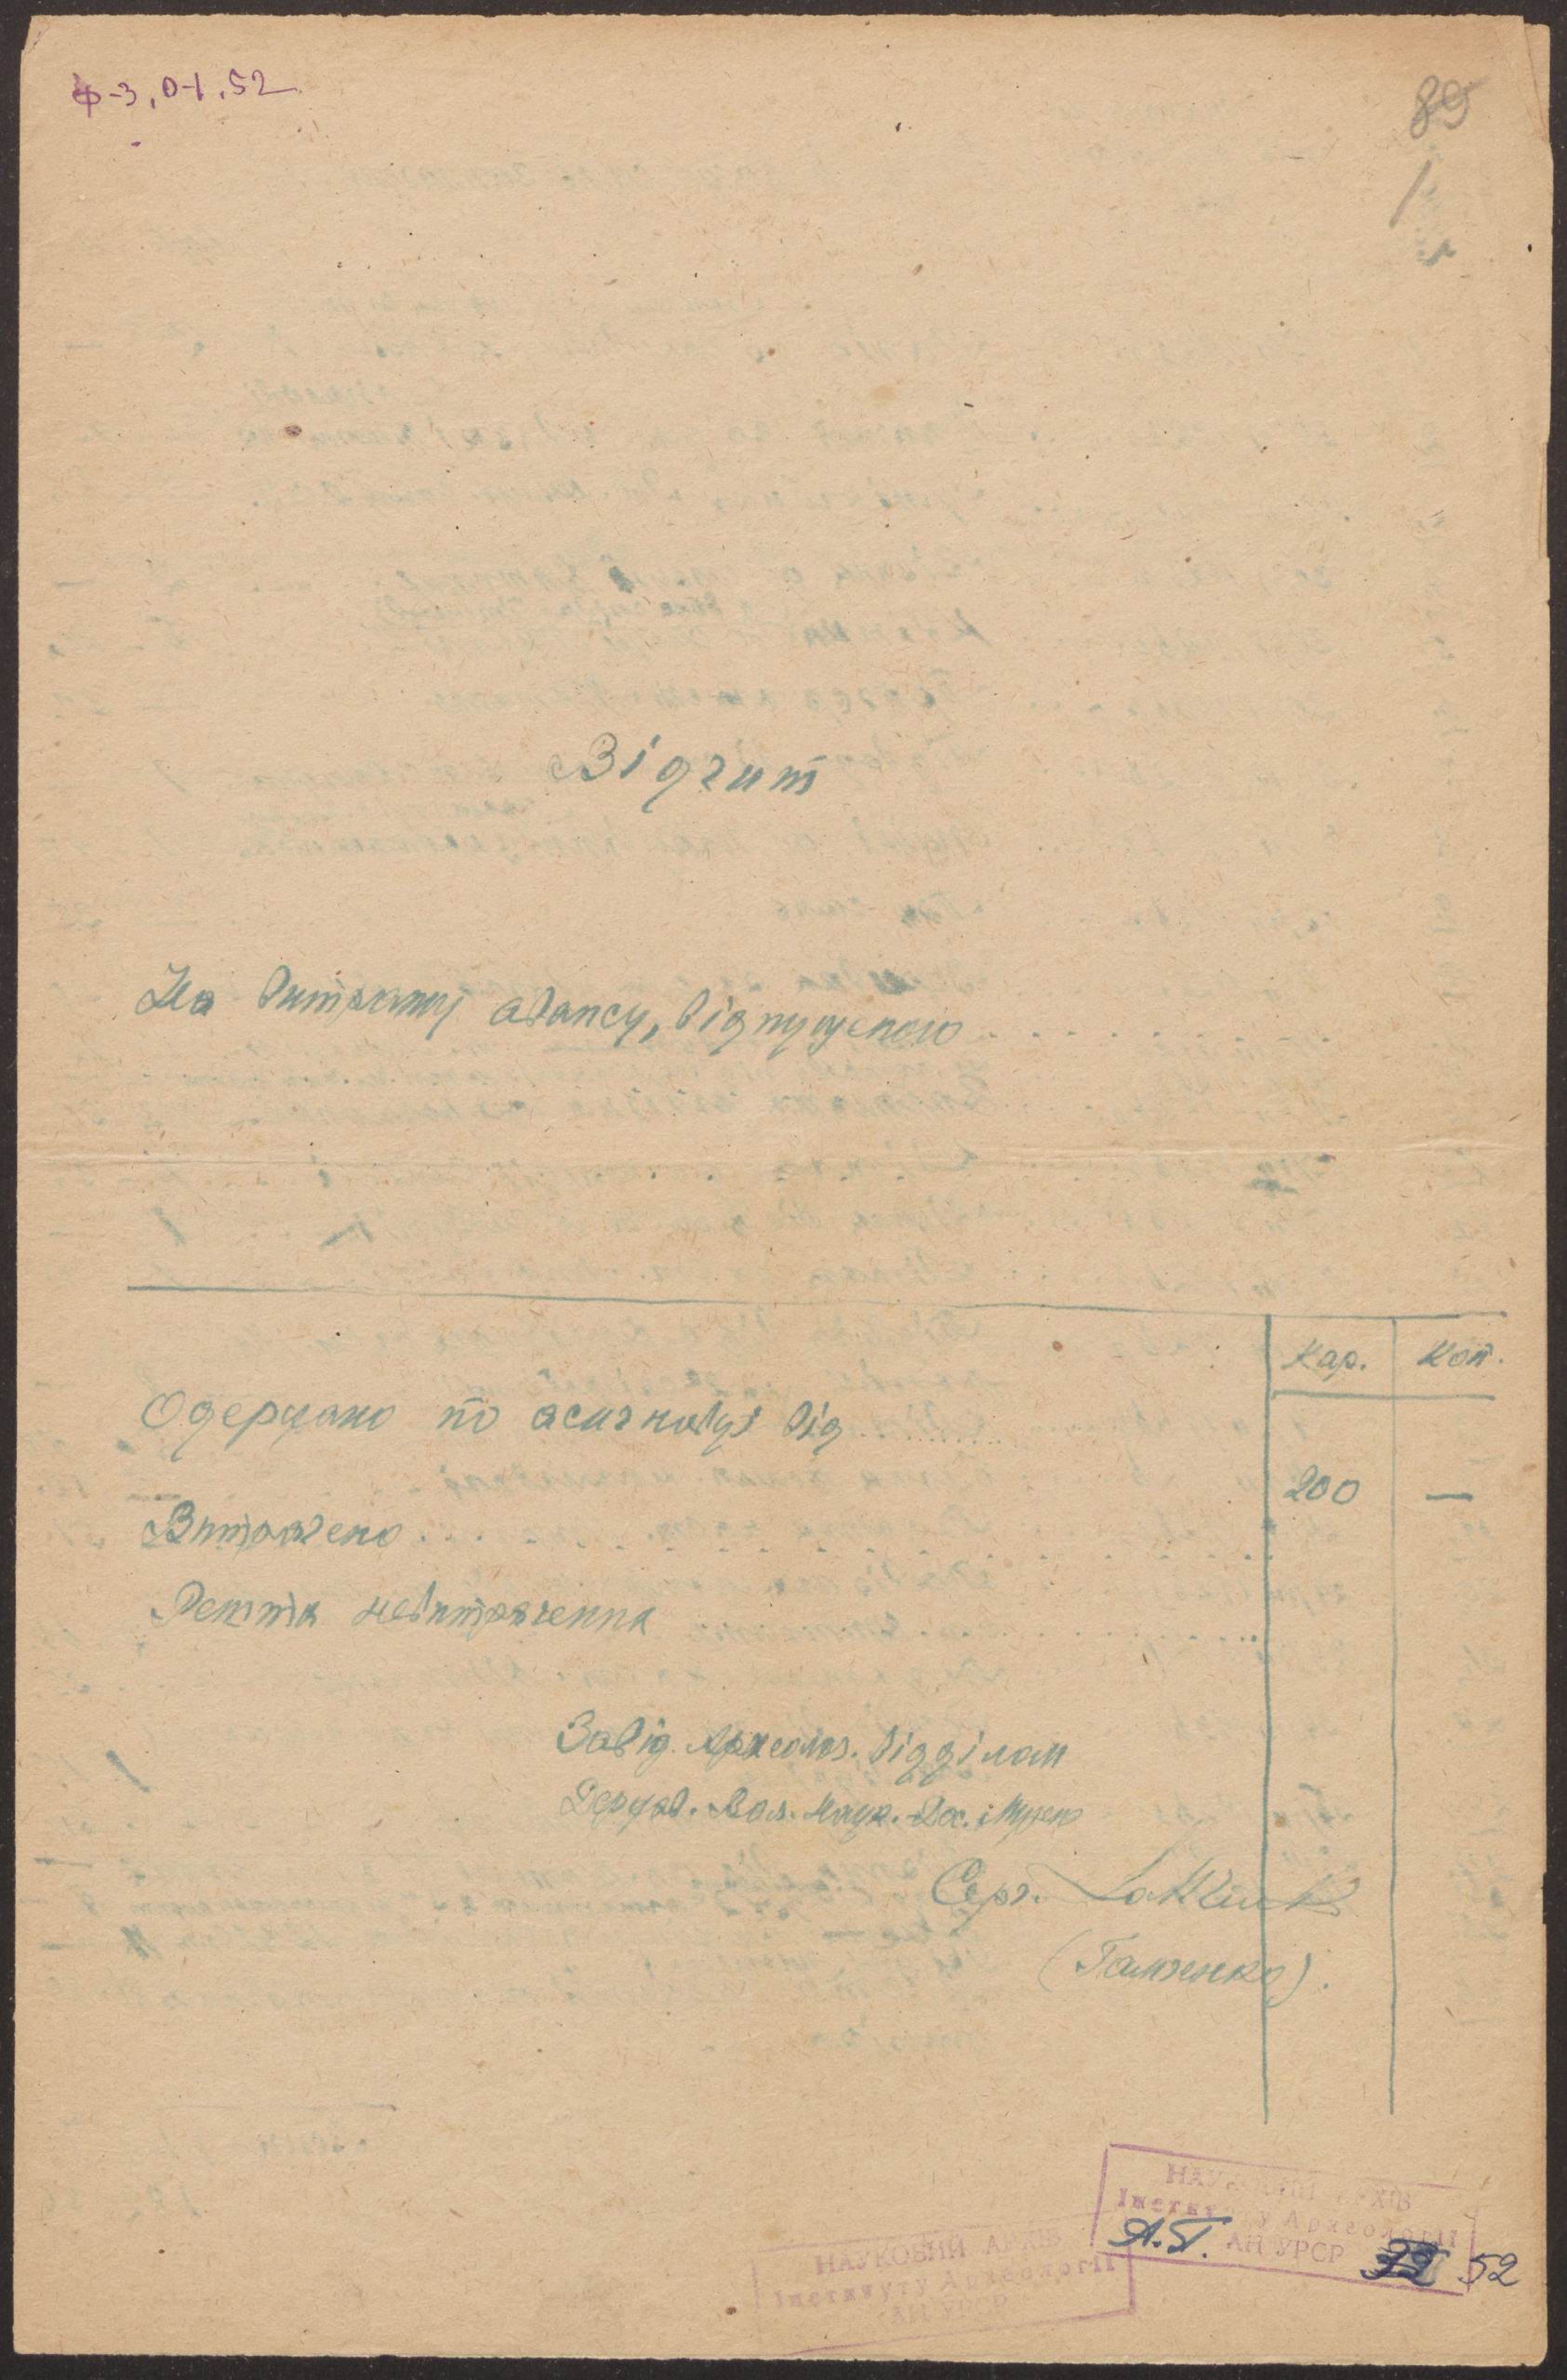 Ф-3, О-1, 52
89
Відчит
На витрату авансу, відпущеного . . . . . . . . . .
Кар. Коп.
Одержано по асигновці від . . . . . . . . . .
200 —
Витрачено . . . . . . . . . . . . . .
Решта невитраченна . . . . . . . . . . . .
Завід. Археолог. відділом
Держав. Вол. Наук.-Дос. Музею
Серг. Гамченко
(Гамченко).
НАУКОВИЙ АРХІВ
Інституту Археології
АН УРСР
А.Г. 52
НАУКОВИЙ АРХІВ
Інституту Археології
АН УРСР